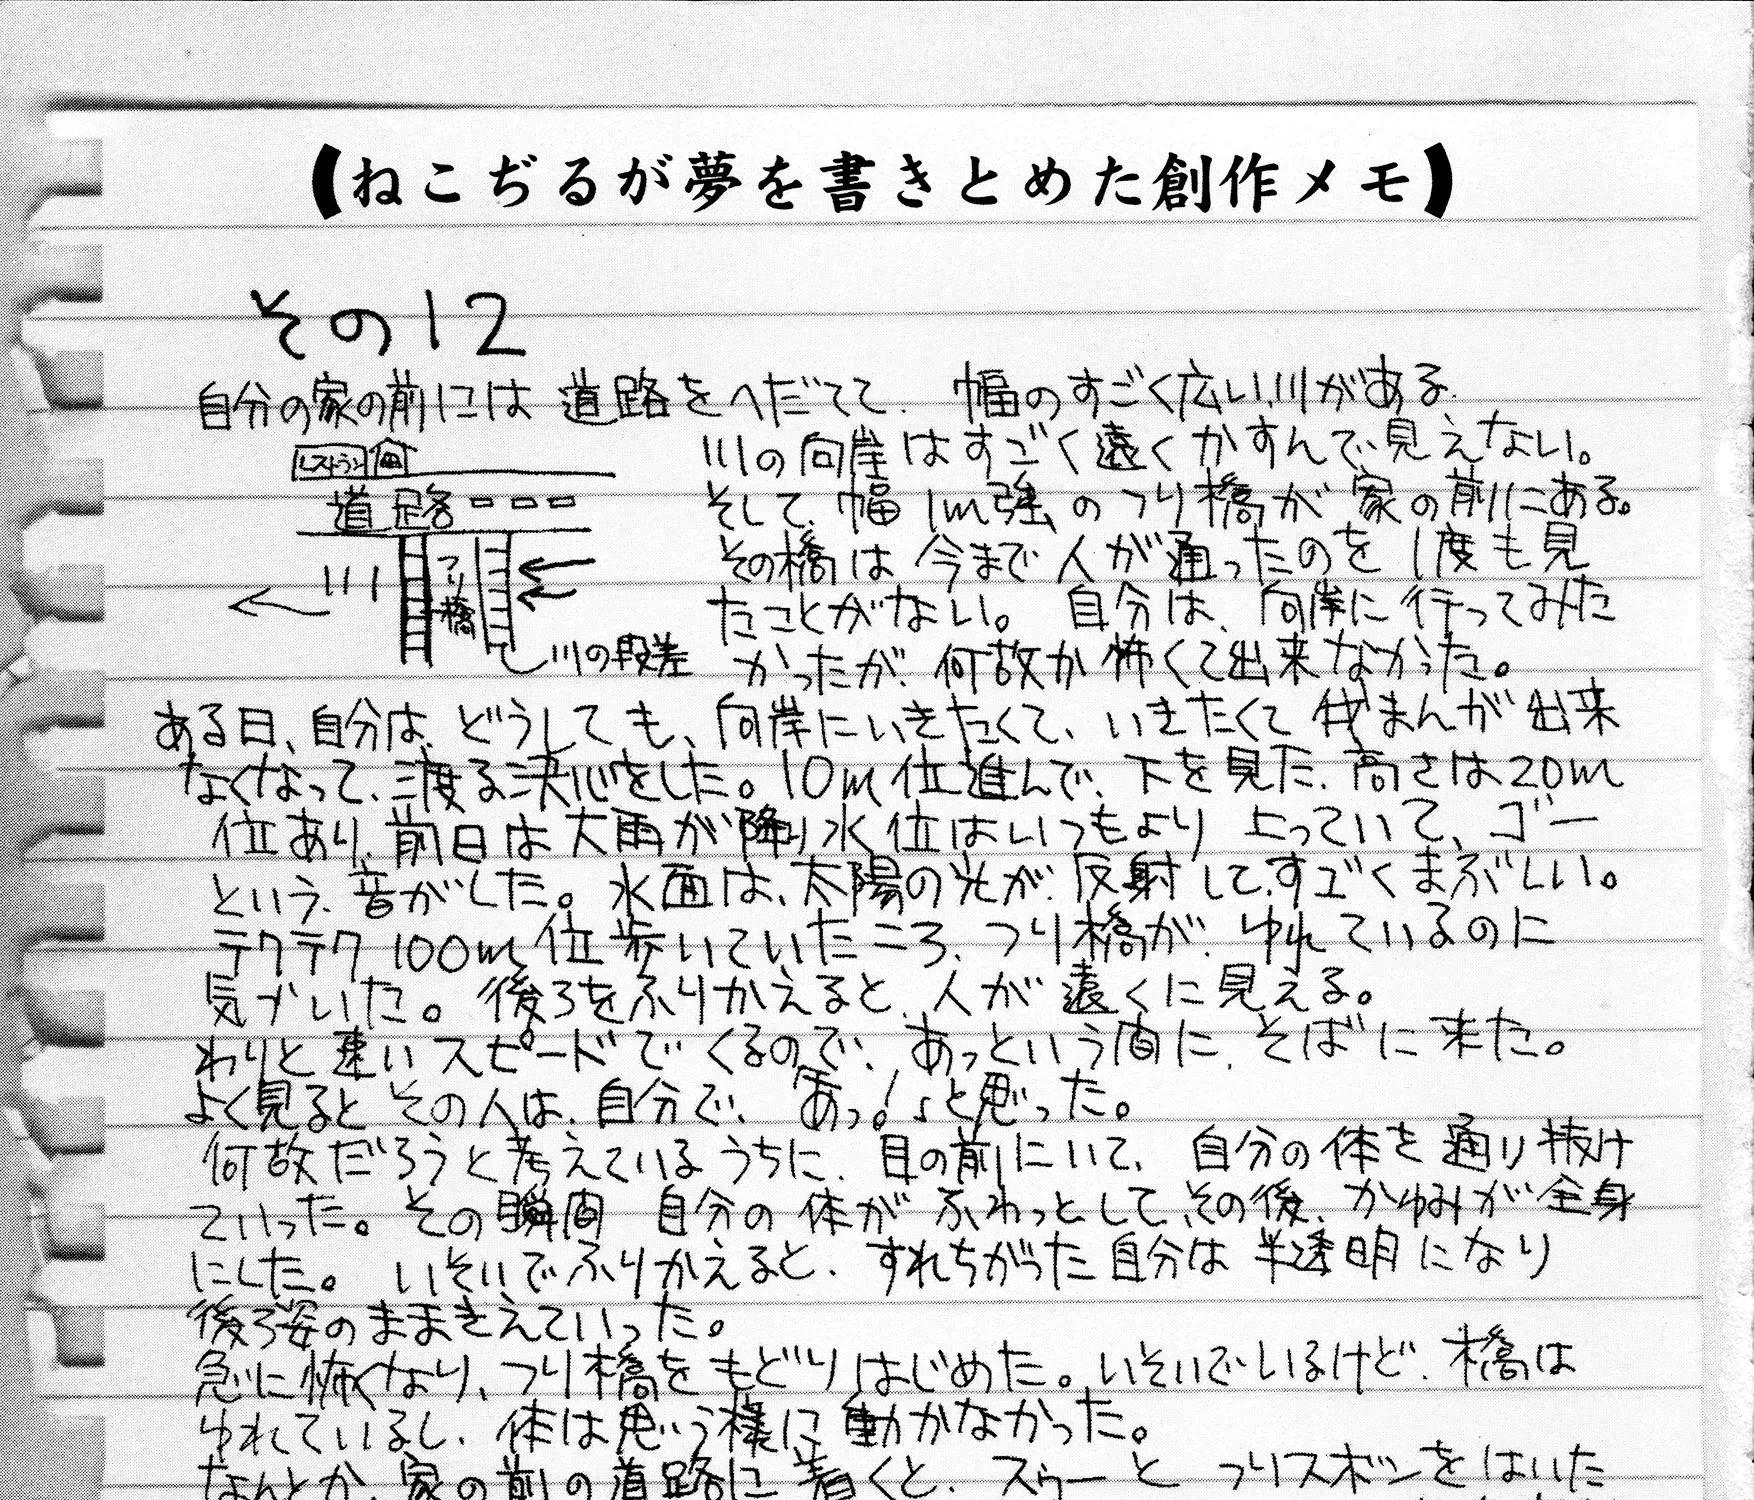 【ねこぢるが夢を書きとめた創作メモ】
その12
自分の家の前には 道路をへだてて、幅のすごく広い川がある。
レストラン
道路
つり橋
川
川の段差
川の向岸はすごく遠くかすんで見えない。
そして、幅1m強のつり橋が家の前にある。
その橋は今まで人が通ったのを1度も見
たことがない。自分は、向岸に行ってみた
かったが、何故か怖くて出来なかった。
ある日、自分は、どうしても、向岸にいきたくて、いきたくて我まんが出来
なくなって、渡る決心をした。10m位進んで、下を見た、高さは20m
位あり、前日は大雨が降り水位はいつもより上っていて、ゴー
という、音がした。水面は、太陽の光が、反射して、すごくまぶしい。
テクテク100m位歩いていたころ、つり橋が、ゆれているのに
気づいた。後ろをふりかえると、人が遠くに見える。
わりと速いスピードでくるので、あっという間に、そばに来た。
よく見るとその人は、自分で、「あっ!」と思った。
何故だろうと考えているうちに、目の前にいて、自分の体を通り抜け
ていった。その瞬間 自分の体がふわっとして、その後、かゆみが全身
にした。いそいでふりかえると、すれちがった自分は半透明になり
後ろ姿のままきえていった。
急に怖くなり、つり橋をもどりはじめた。いそいでいるけど、橋は
ゆれているし、体は思う様に動かなかった。
なんとか、家の前の道路に着くと、スゥーとつりズボンをはいた